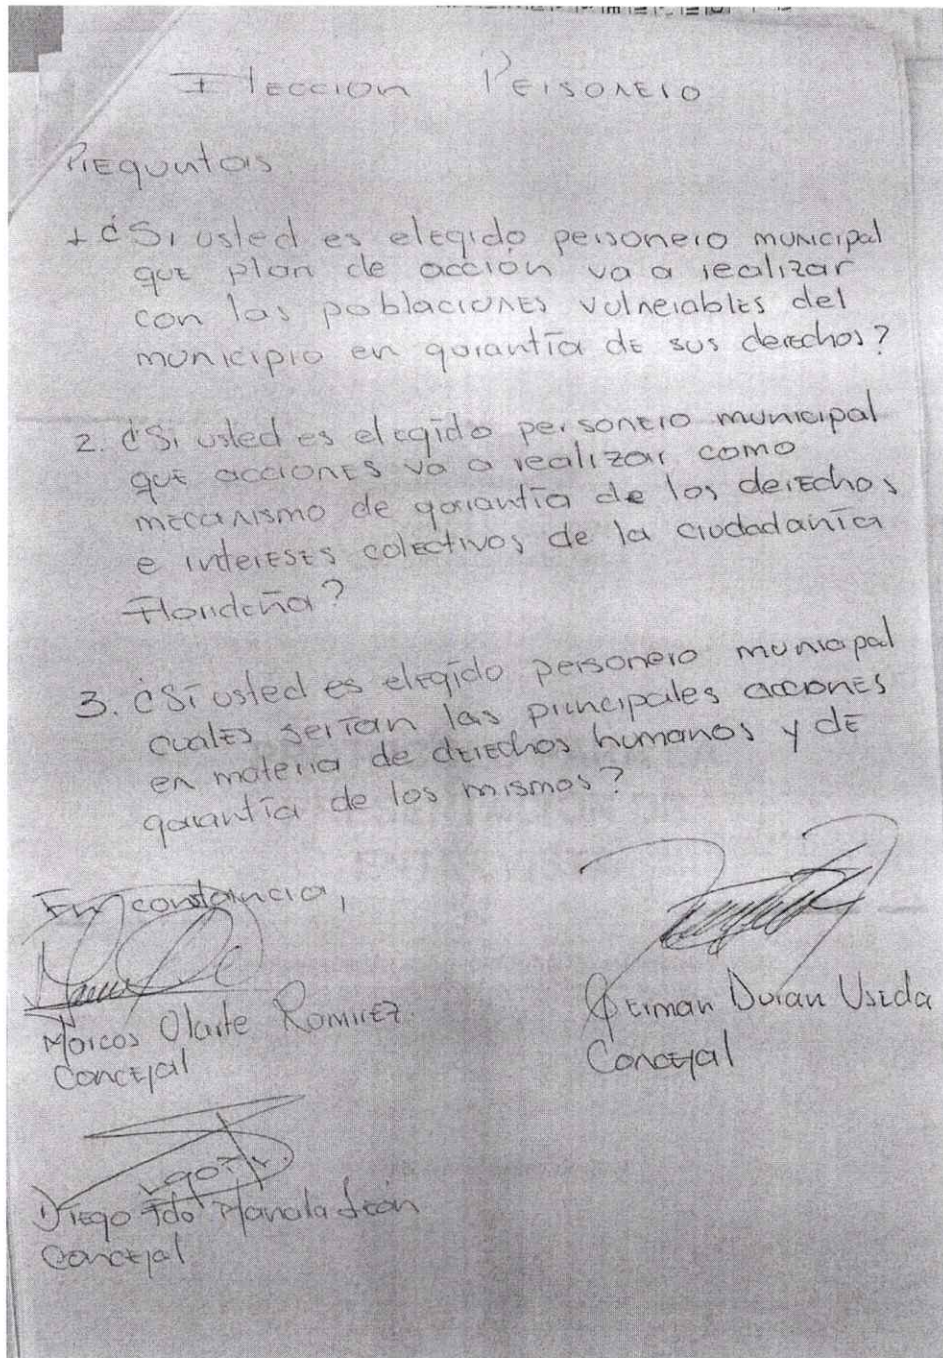 Elección Personero
Preguntas.
1 ¿Si usted es elegido personero municipal
que plan de acción va a realizar
con las poblaciones vulnerables del
municipio en garantía de sus derechos?
2. ¿Si usted es elegido personero municipal
que acciones va a realizar como
mecanismo de garantía de los derechos
e intereses colectivos de la ciudadanía
Florideña?
3. ¿Si usted es elegido personero municipal
cuales serían las principales acciones
en materia de derechos humanos y de
garantía de los mismos?
En constancia,
Marcos Olarte Ramirez.
Concejal
German Duran Useda
Concejal
Diego Fdo León
Concejal